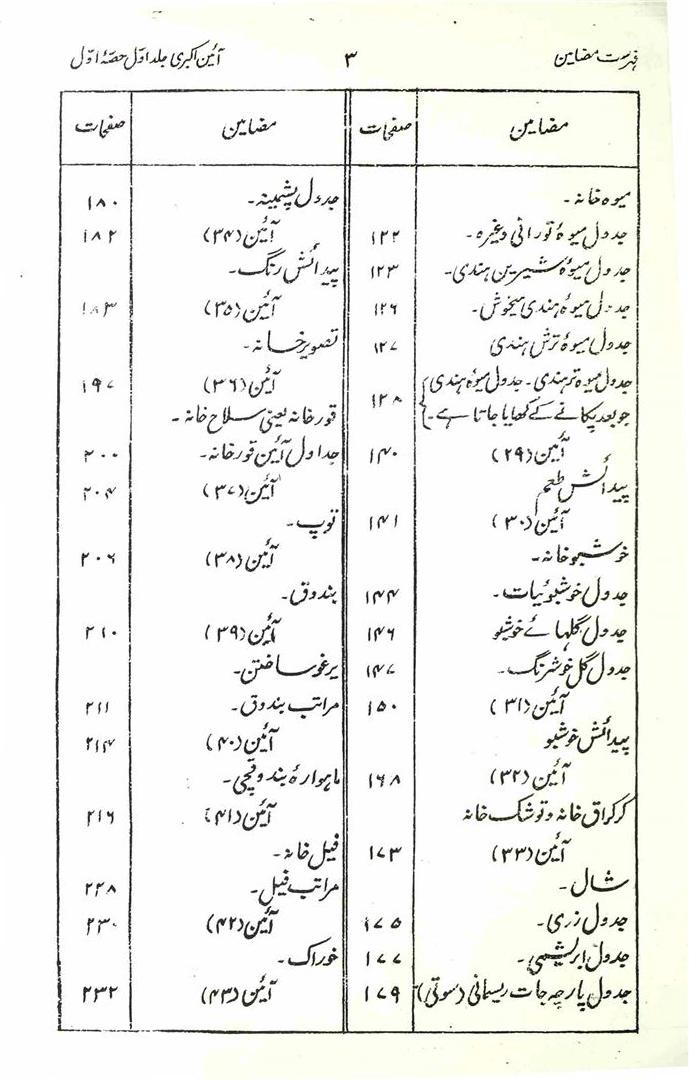 فہرست مضامین ۳ آئین اکبری جلد اوّل حصّۂ اوّل
مضامین صفحات مضامین صفحات
میوہ خانہ۔
جدول میوۂ تورانی وغیرہ۔ ۱۲۲
جدول میوۂ شیرین ہندی۔ ۱۲۳
جدول میوۂ ہندی میخوش۔ ۱۲۶
جدول میوۂ ترش ہندی ۱۲۷
جدول میوہ تر ہندی۔ جدول میوہ ہندی
جو بعد پکانے کے کھایا جاتا ہے۔ ۱۲۸
آئین (۲۹) ۱۴۰
پیدائش طعم
آئین (۳۰) ۱۴۱
خوشبو خانہ۔
جدول خوشبوئیات۔ ۱۴۴
جدول گلہائے خوشبو ۱۴۶
جدول گل خوشرنگ۔ ۱۴۷
آئین (۳۱) ۱۵۰
پیدائش خوشبو
آئین (۳۲) ۱۶۸
کرکراق خانہ و توشک خانہ
آئین (۳۳) ۱۷۳
شال۔
جدول زری۔ ۱۷۵
جدول ابریشمی۔ ۱۷۷
جدول پارچہ جات ریسمانی (سوتی) ۱۷۹
جدول پشمینہ۔ ۱۸۰
آئین (۳۴) ۱۸۲
پیدائش رنگ۔
آئین (۳۵) ۱۸۳
تصویر خانہ۔
آئین (۳۶) ۱۹۷
قور خانہ یعنی سلاح خانہ۔
جداول آئین قور خانہ۔ ۲۰۰
آئین (۳۷) ۲۰۴
توپ۔
آئین (۳۸) ۲۰۶
بندوق۔
آئین (۳۹) ۲۱۰
یرغو ساختن۔
مراتب بندوق۔ ۲۱۱
آئین (۴۰) ۲۱۴
ماہوارۂ بندوقچی۔
آئین (۴۱) ۲۱۶
فیل خانہ۔
مراتب فیل۔ ۲۲۸
آئین (۴۲) ۲۳۰
خوراک۔
آئین (۴۳) ۲۳۲